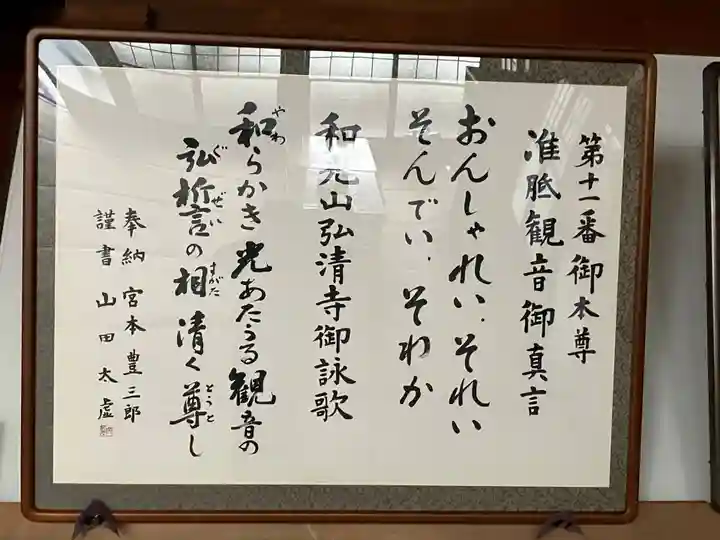 第十一番御本尊
准胝観音御真言
おんしゃれい、それい
そんでい、そわか
和光山弘清寺御詠歌
和らかき光あたうる観音の
やわ
弘誓の相清く尊し
ぐぜい
すがた
とうと
奉納 宮本豊三郎
謹書 山田太虚